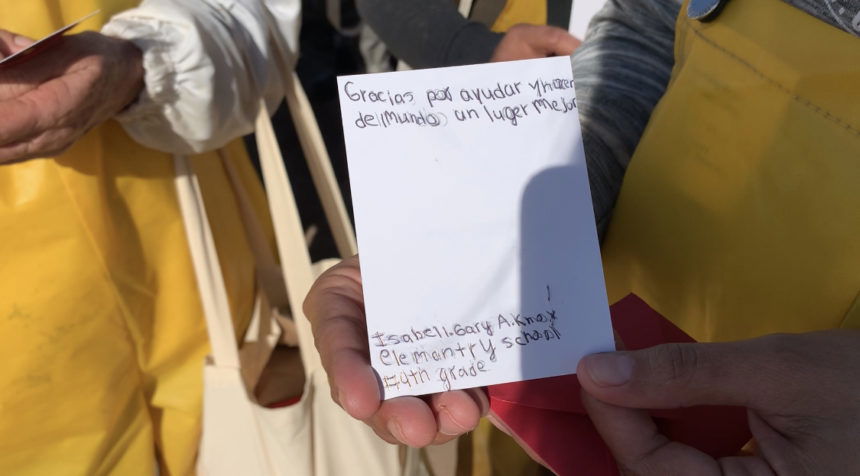 Gracias por ayudar y hacer
del mundo un luger mejor
Isabell-Gary A. Knox
elemantry school
4th grade